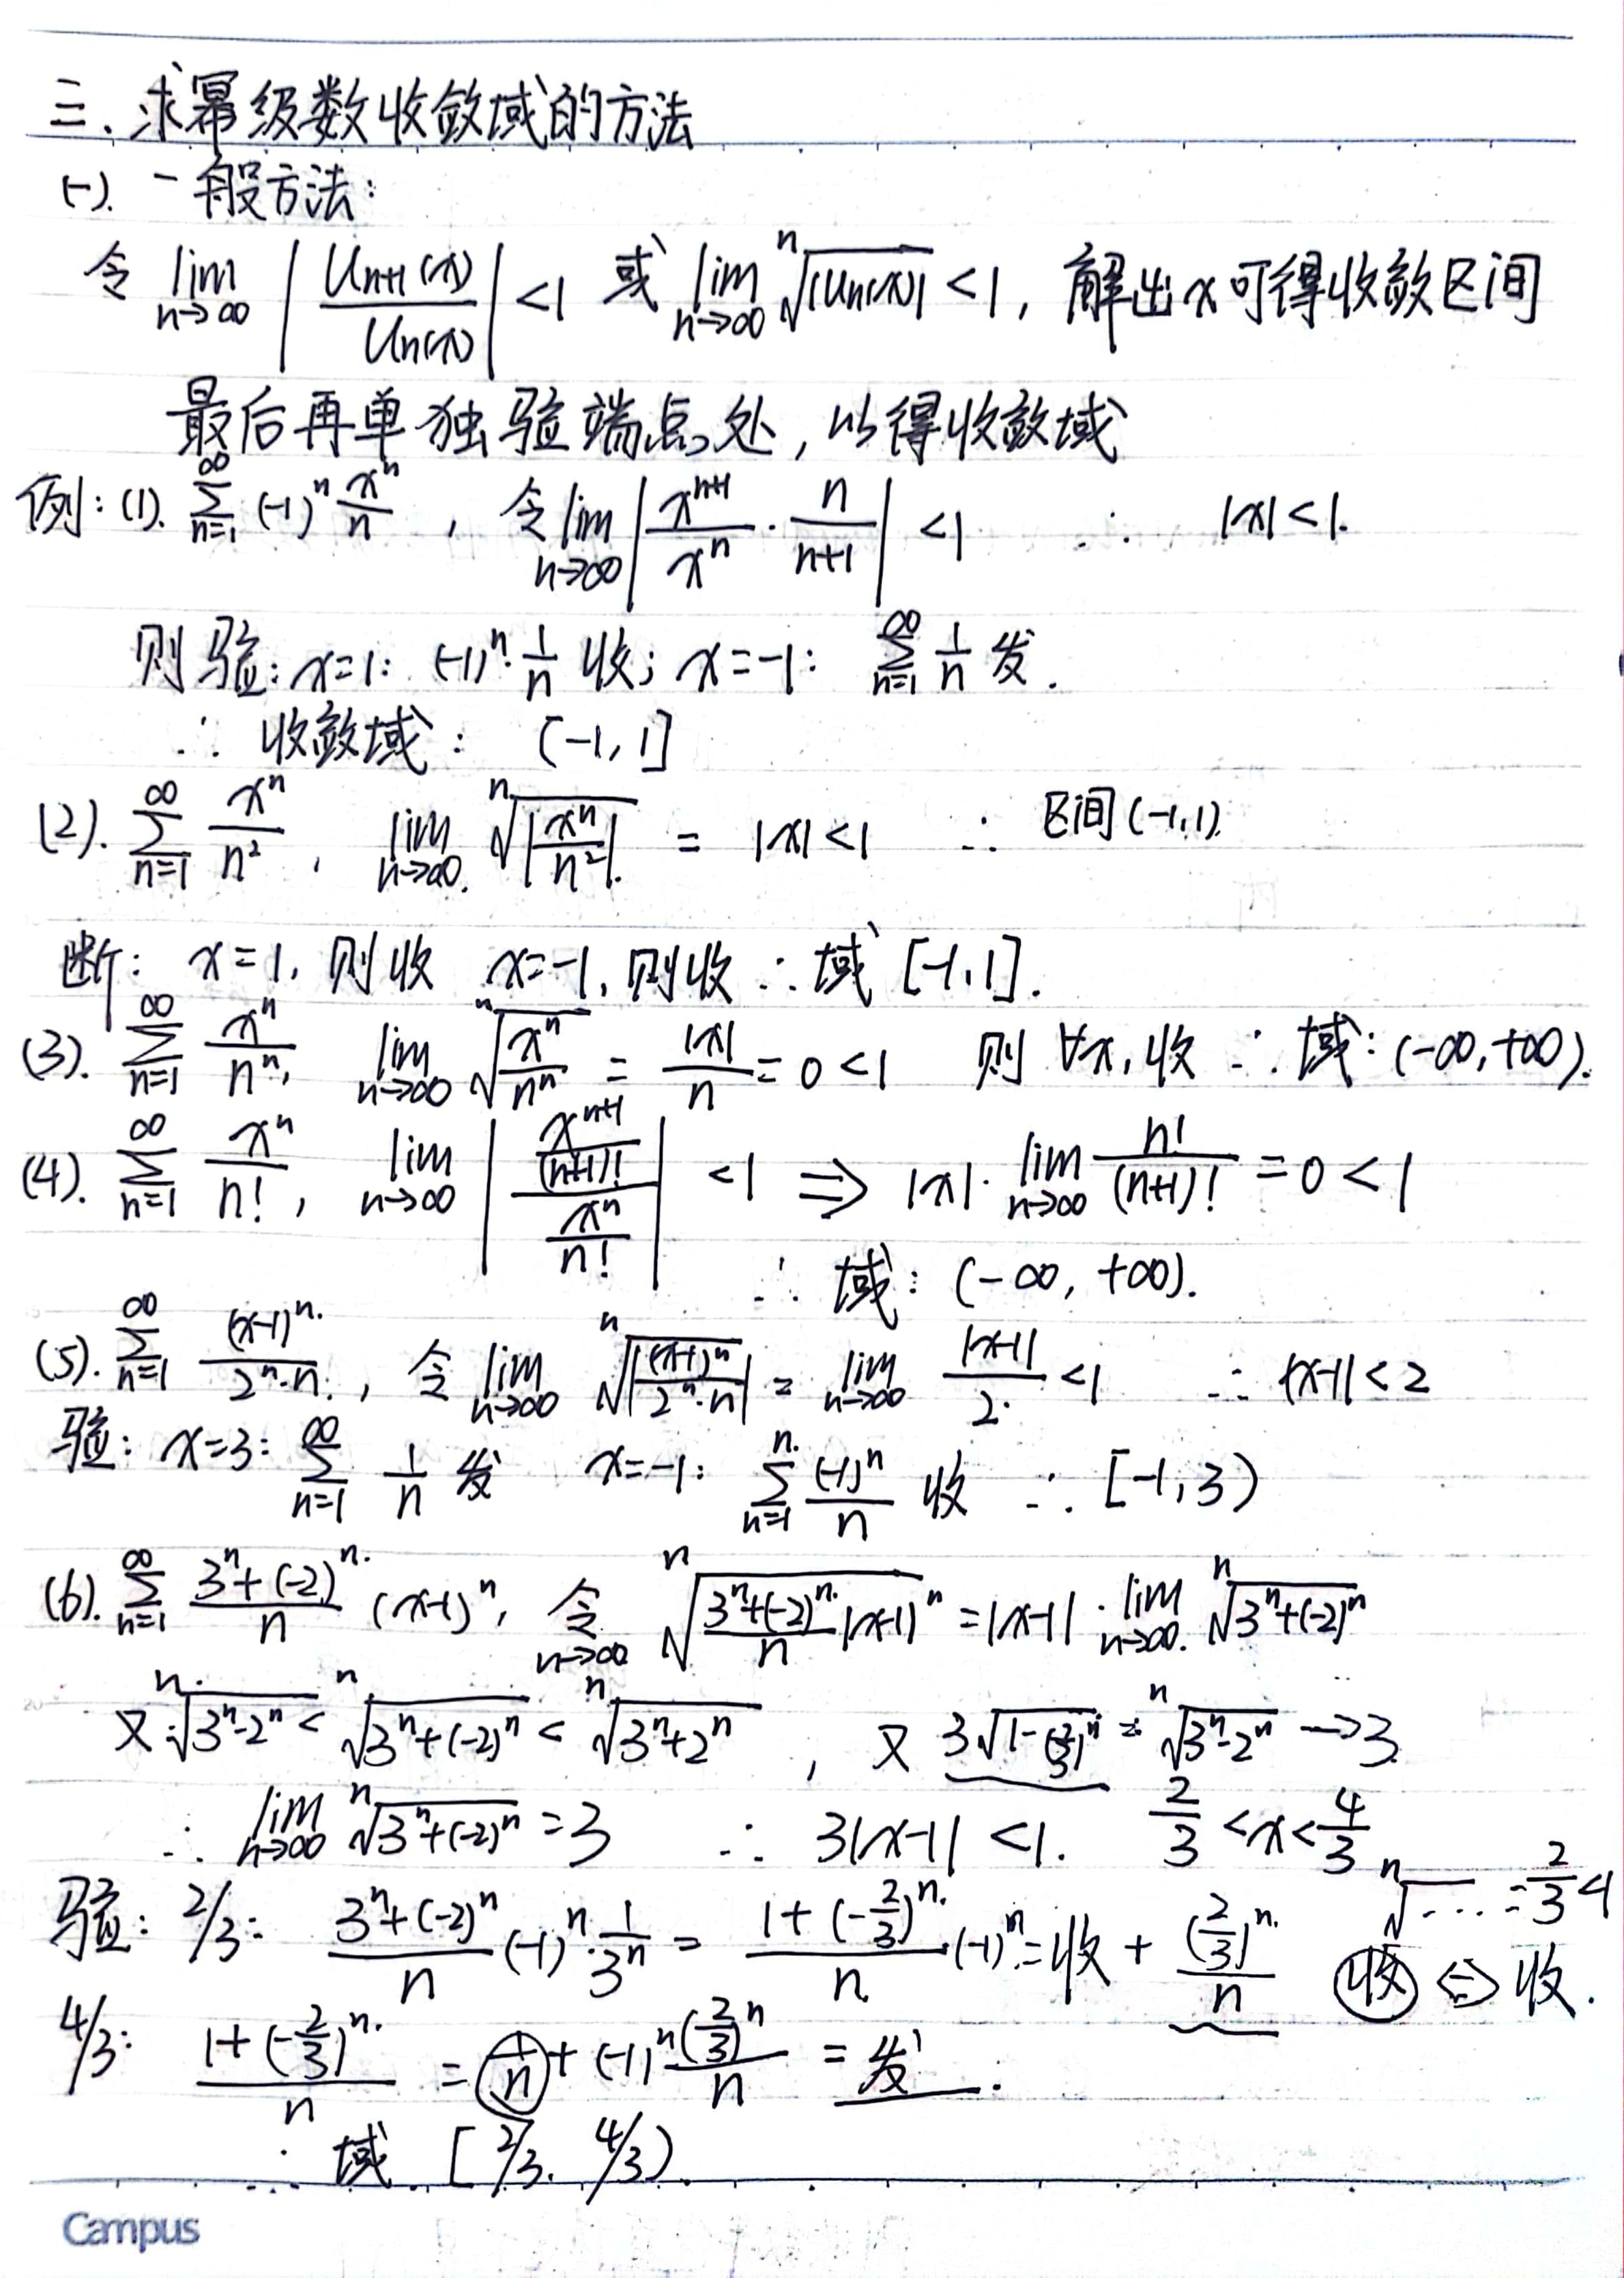 三、求幂级数收敛域的方法
(一). 一般方法:
令 lim_{n→∞} |U_{n+1}(x)/U_n(x)| <1 或 lim_{n→∞} ⁿ√|U_n(x)| <1, 解出x可得收敛区间
最后再单独验端点处, 以得收敛域
例: (1). ∑_{n=1}^{∞} (-1)^n x^n/n , 令 lim_{n→∞} |x^{n+1}/x^n · n/(n+1)| <1 ∴ |x|<1.
则验: x=1: (-1)^n·1/n 收; x=-1: ∑_{n=1}^{∞} 1/n 发.
∴ 收敛域: (-1, 1]
(2). ∑_{n=1}^{∞} x^n/n², lim_{n→∞} ⁿ√|x^n/n²| = |x|<1 ∴ 区间(-1,1).
断: x=1, 则收 x=-1, 则收 ∴ 域 [-1,1].
(3). ∑_{n=1}^{∞} x^n/n^n, lim_{n→∞} ⁿ√(x^n/n^n) = |x|/n = 0 <1 则 ∀x, 收 ∴ 域: (-∞,+∞).
(4). ∑_{n=1}^{∞} x^n/n!, lim_{n→∞} |(x^{n+1}/(n+1)!)/(x^n/n!)| <1 ⇒ |x|·lim_{n→∞} n!/(n+1)! = 0 < 1
∴ 域: (-∞, +∞).
(5). ∑_{n=1}^{∞} (x-1)^n/(2^n·n), 令 lim_{n→∞} ⁿ√|(x-1)^n/(2^n·n)| = lim_{n→∞} |x-1|/2 <1 ∴ |x-1|<2
验: x=3: ∑_{n=1}^{∞} 1/n 发 x=-1: ∑_{n=1}^{n} (-1)^n/n 收 ∴ [-1,3)
(6). ∑_{n=1}^{∞} (3^n+(-2)^n)/n (x-1)^n, 令 n→∞ ⁿ√((3^n+(-2)^n)/n |x-1|^n) = |x-1|·lim_{n→∞} ⁿ√(3^n+(-2)^n)
又 ⁿ√(3^n-2^n) < ⁿ√(3^n+(-2)^n) < ⁿ√(3^n+2^n) , 又 3√(1-(2/3)^n) = ⁿ√(3^n-2^n) → 3
∴ lim_{n→∞} ⁿ√(3^n+(-2)^n) = 3 ∴ 3|x-1| <1. 2/3 <x< 4/3
验: 2/3: (3^n+(-2)^n)/n (-1)^n·1/3^n = (1+(-2/3)^n)/n·(-1)^n = 收 + (2/3)^n/n ⁿ√... = 2/3 <1 收 ⇔ 收.
4/3: (1+(-2/3)^n)/n = 1/n + (-1)^n (2/3)^n/n = 发.
∴ 域 [2/3, 4/3)
Campus